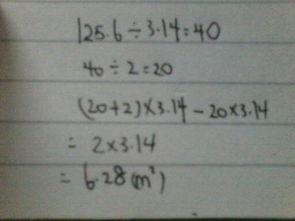 125.6÷3.14=40
40÷2=20
(20+2)×3.14-20×3.14
=2×3.14
=6.28(m²)